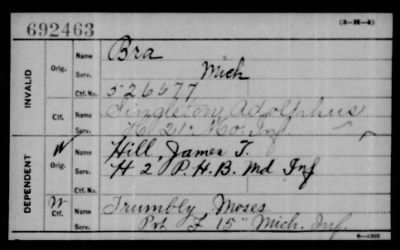 692463
(3-H-4)
INVALID
Orig.
Name
Bra
Serv.
Mich
Ctf. No.
526677
Ctf.
Name
Singleton, Adolphus
Serv.
H 21" Mo. Inf
DEPENDENT
W
Orig.
Name
Hill, James T.
Serv.
H 2 P.H.B. Md Inf
Ctf. No.
W
Ctf.
Name
Trumbly Moses
Serv.
Pvt F 15" Mich. Inf.